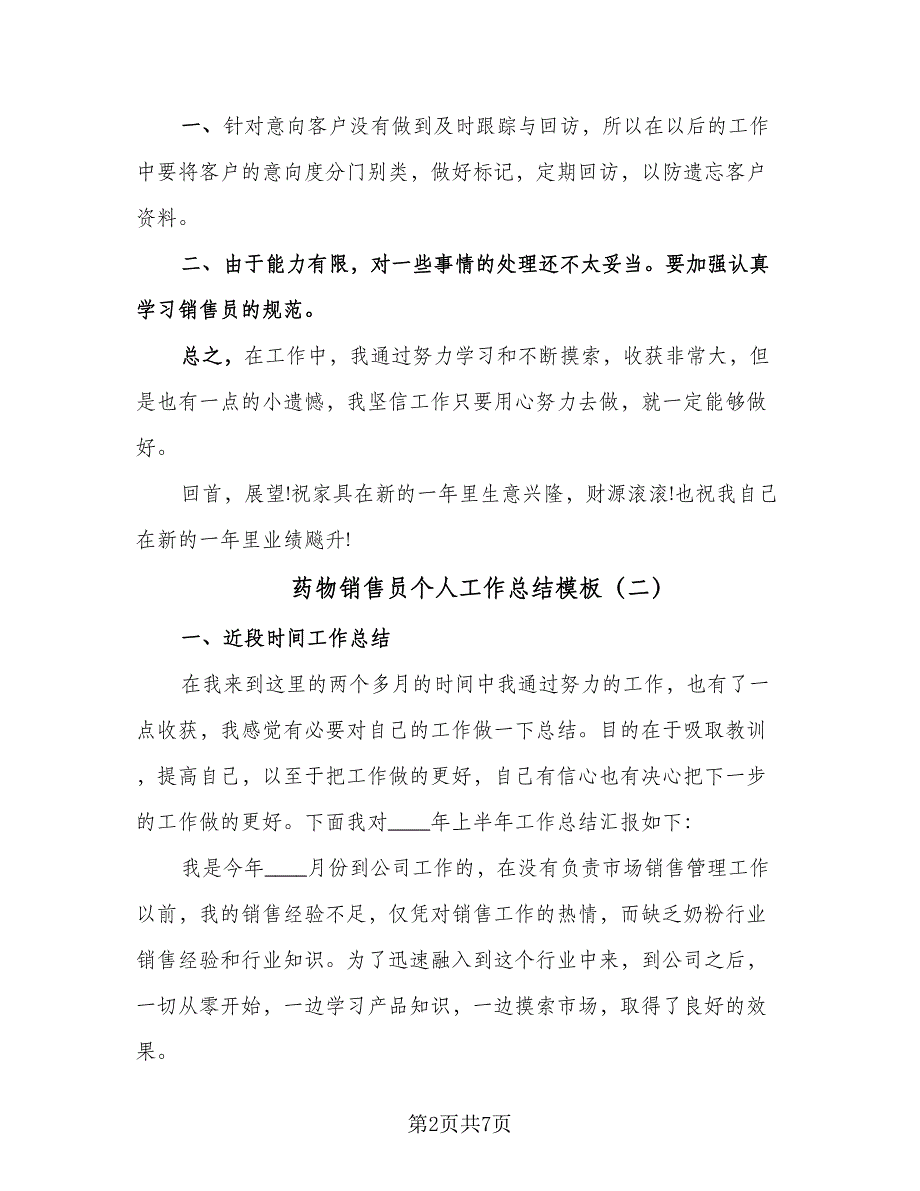 一、针对意向客户没有做到及时跟踪与回访，所以在以后的工作
中要将客户的意向度分门别类，做好标记，定期回访，以防遗忘客户
资料。
二、由于能力有限，对一些事情的处理还不太妥当。要加强认真
学习销售员的规范。
总之，在工作中，我通过努力学习和不断摸索，收获非常大，但
是也有一点的小遗憾，我坚信工作只要用心努力去做，就一定能够做
好。
回首，展望!祝家具在新的一年里生意兴隆，财源滚滚!也祝我自己
在新的一年里业绩飚升!
药物销售员个人工作总结模板（二）
一、近段时间工作总结
在我来到这里的两个多月的时间中我通过努力的工作，也有了一
点收获，我感觉有必要对自己的工作做一下总结。目的在于吸取教训
，提高自己，以至于把工作做的更好，自己有信心也有决心把下一步
的工作做的更好。下面我对____年上半年工作总结汇报如下：
我是今年____月份到公司工作的，在没有负责市场销售管理工作
以前，我的销售经验不足，仅凭对销售工作的热情，而缺乏奶粉行业
销售经验和行业知识。为了迅速融入到这个行业中来，到公司之后，
一切从零开始，一边学习产品知识，一边摸索市场，取得了良好的效
果。
第2页共7页